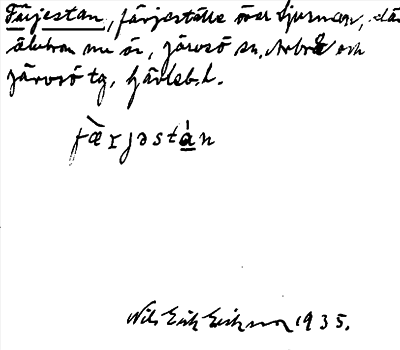 Färjestan, färjeställe över Ljusnan, där
älvbron nu är, järvsö sn, Arbrå och
järvsö tg, Hälsl.
fæ̀rjəstàn
Nils Erik Eriksson 1935.